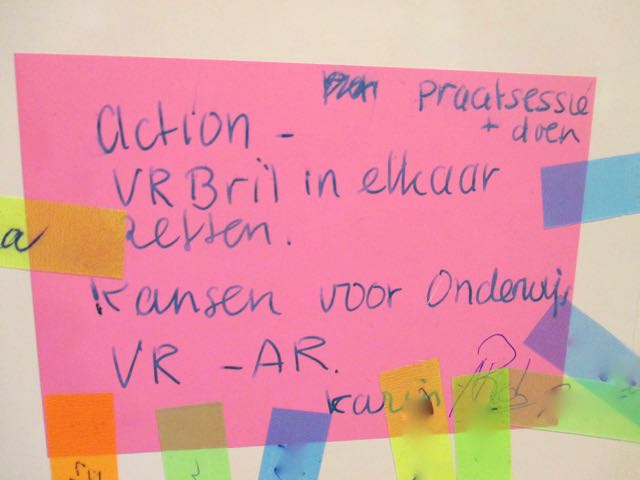 praatsessie
+ doen
action -
VR Bril in elkaar
zetten.
Kansen voor Onderwijs
VR - AR.
Karin
a